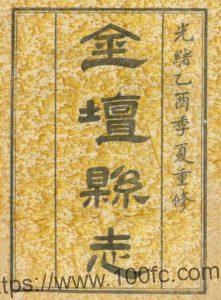 光緒乙酉季夏重修
金壇縣志
https://www.100fc.com